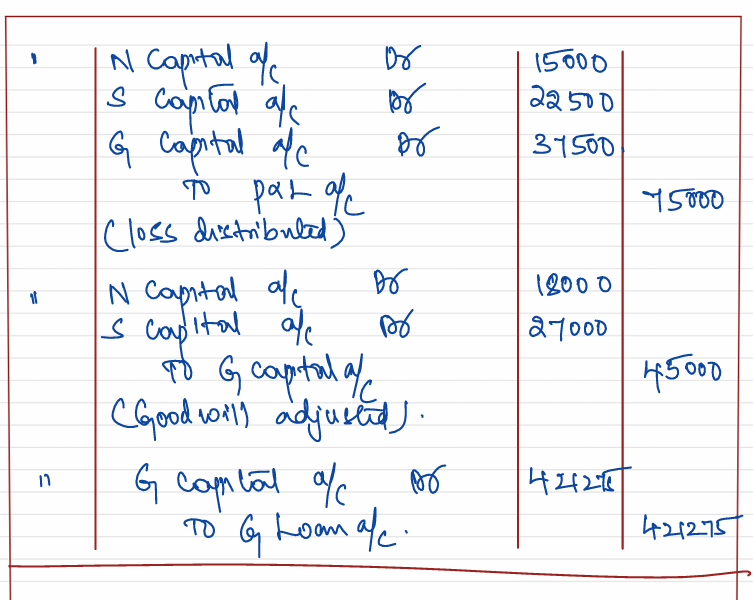 " N Capital a/c Dr 15000
S Capital a/c Dr 22500
G Capital a/c Dr 37500
To P&L a/c 75000
(loss distributed)
" N Capital a/c Dr 18000
S Capital a/c Dr 27000
To G Capital a/c 45000
(Goodwill adjusted).
" G Capital a/c Dr 421275
To G Loan a/c. 421275